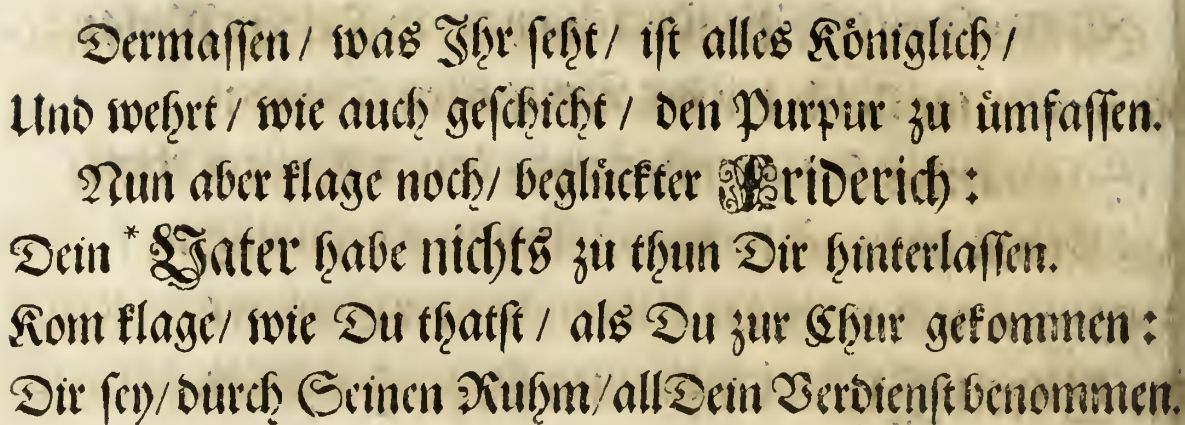 Dermaſſen / was Ihr ſeht / iſt alles Königlich /
Und wehrt / wie auch geſchicht / den Purpur zu ümfaſſen.
Nun aber klage noch / beglückter Friderich :
Dein * Vater habe nichts zu thun Dir hinterlaſſen.
Kom klage / wie Du thatſt / als Du zur Chur gekommen :
Dir ſey / durch Seinen Ruhm / all Dein Verdienſt benommen.